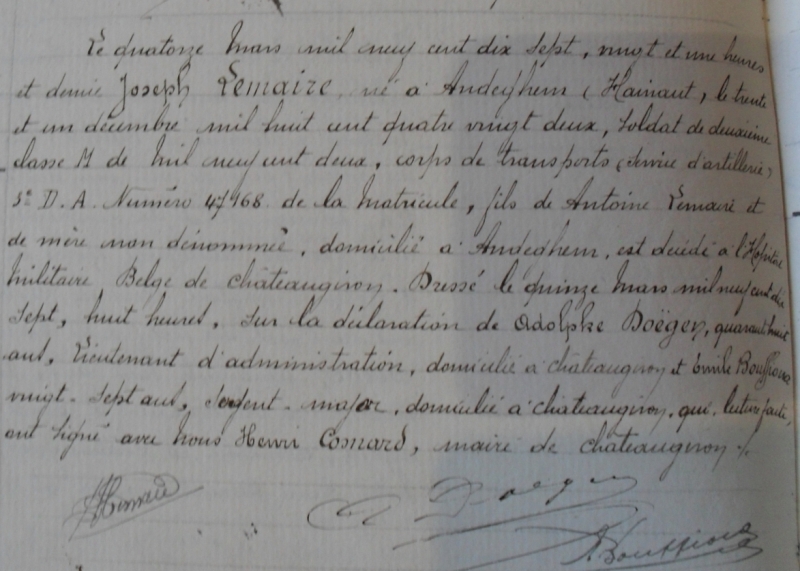 Le quatorze Mars mil neuf cent dix sept, vingt et une heures
et demie Joseph Lemaire, né à Andeghem (Hainaut, le trente
et un décembre mil huit cent quatre vingt deux, soldat de deuxième
classe M de mil neuf cent deux, corps de transports (service d'artillerie)
5e D. A. Numéro 47168 de la Matricule, fils de Antoine Lemaire et
de mère non dénommée, domicilié à Andeghem, est décédé à l'Hôpital
Militaire Belge de châteaugiron. Dressé le quinze Mars mil neuf cent dix
sept, huit heures, sur la déclaration de Adolphe Doëgen, quarante huit
ans, Lieutenant d'administration, domicilié à châteaugiron et Emile Bouffioux
vingt-sept ans, sergent-major, domicilié à châteaugiron, qui, lecture faite,
ont signé avec Nous Henri Cosnard, maire de châteaugiron ./.
Doegen
Bouffioux